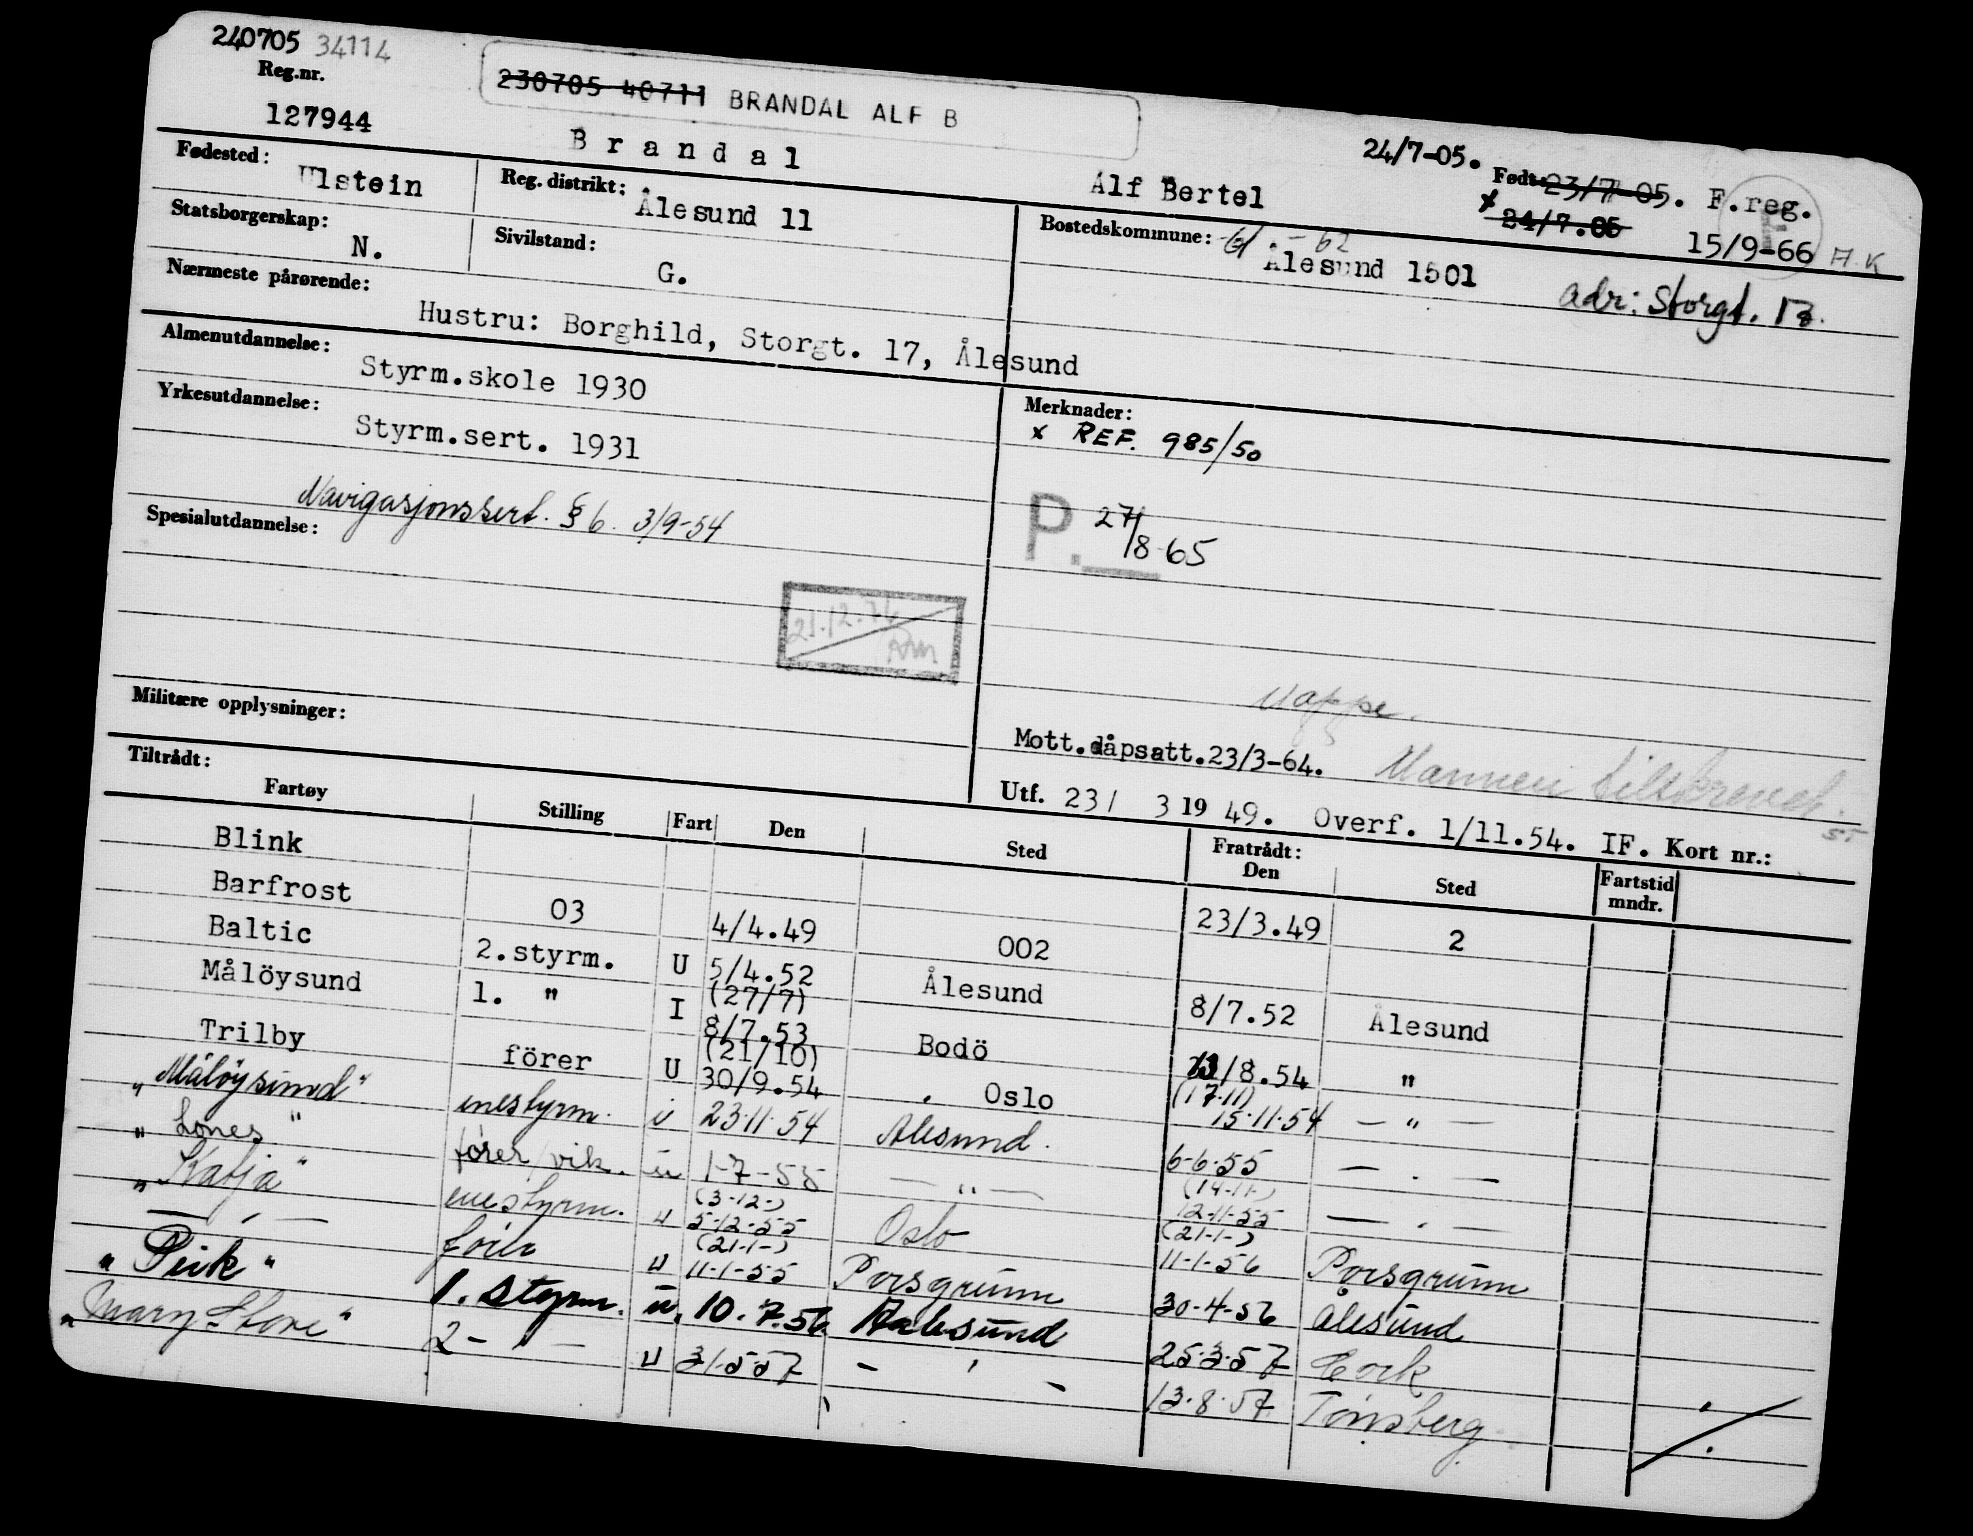 240705 34114
Reg.nr.
230705 40711 BRANDAL ALF B
127944
Brandal
Alf Bertel
24/7-05.
Født: 23/7 05. F.reg.
x 24/7.05
15/9-66 A.K
Fødested: Ulstein
Reg. distrikt: Ålesund 11
Bostedskommune: - 62
Ålesund 1501
Statsborgerskap: N.
Sivilstand: G.
adr: Storgt. 17.
Nærmeste pårørende: Hustru: Borghild, Storgt. 17, Ålesund
Almenutdannelse: Styrm.skole 1930
Merknader:
x REF. 985/50
Yrkesutdannelse: Styrm.sert. 1931
Navigasjonssert. § 6. 3/9-54
P. 27/8-65
Spesialutdannelse:
21.12.76
Mappe.
Militære opplysninger:
Mott.dåpsatt.23/3-64.
Mannen tilskrevet.
Utf. 23/ 3 19 49. Overf. 1/11.54. IF. Kort nr.:
Tiltrådt:
Fratrådt:
Fartøy Stilling Fart Den Sted Den Sted Fartstid mndr.
Blink 23/3.49 2
Barfrost 03 4/4.49 002
Baltic 2.styrm. U 5/4.52 Ålesund 8/7.52 Ålesund
(27/7)
Målöysund 1. " I 8/7.53 Bodö /8.54 "
(21/10) (17.11)
Trilby förer U 30/9.54 Oslo 15.11.54 - " -
"Målöysund" enestyrm. u 23.11.54 Ålesund. 6-6-55 - . -
(14-11-)
"Lones" fører/vik. u 1-7-55 - " - 12-11-55 - . -
(3-12-) (21-1-)
"Katja" enestyrm. u 5-12-55 Oslo 11-1-56 Porsgrunn
(21-1-)
- ' - förer u 11-1-55 Porsgrunn 30-4-56 Ålesund
"Peik" 1. styrm. u. 10.7.56 Aalesund 25.3.57 Cork
"Mary Stove" 2 - ' - u 31-5-57 - ' - 13.8.57 Tönsberg